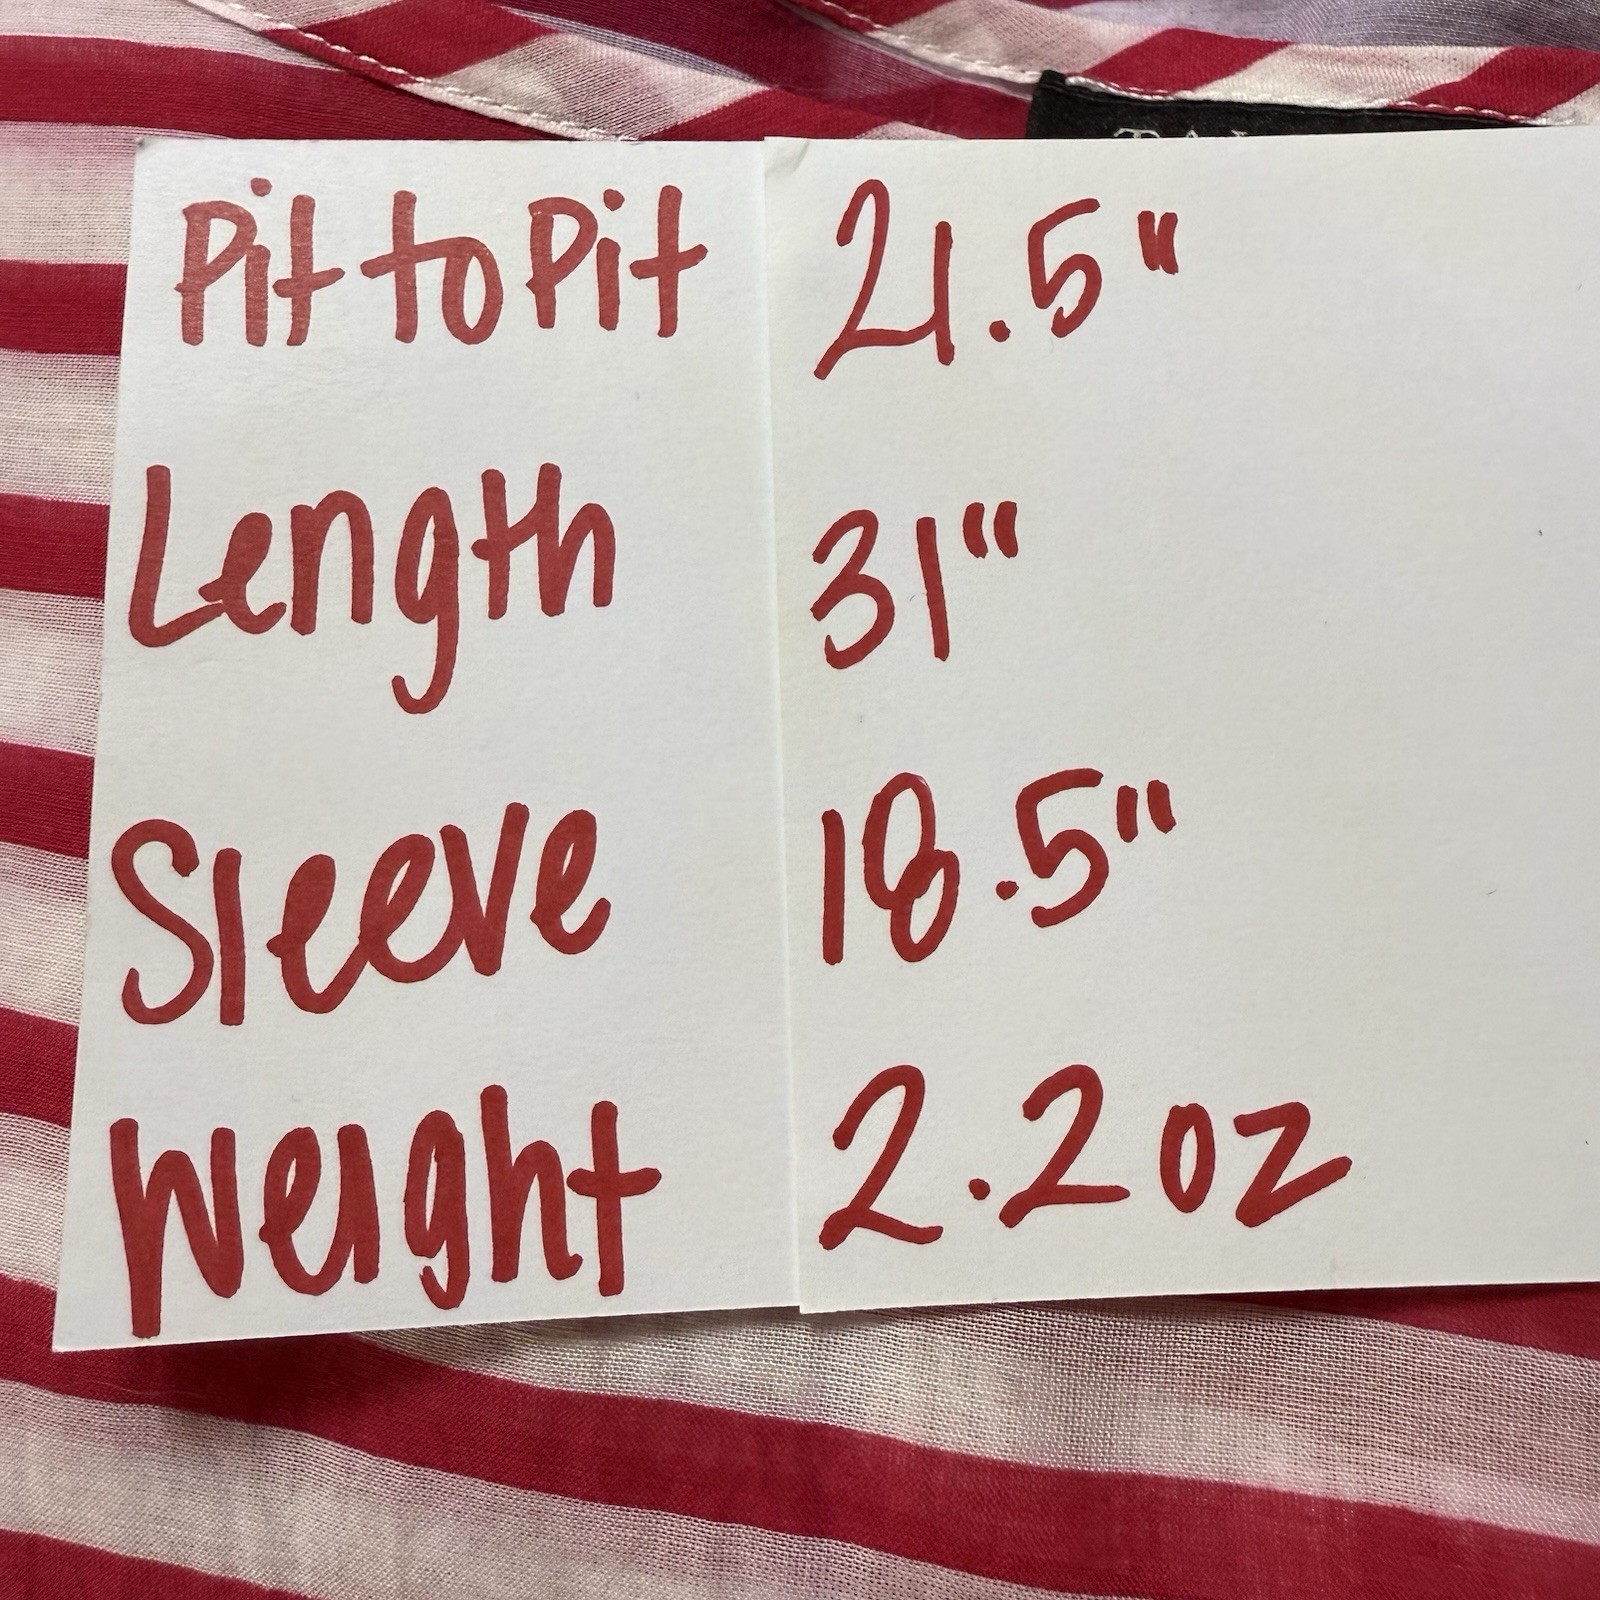 Pit to Pit 21.5"
Length 31"
Sleeve 18.5"
Weight 2.2 oz